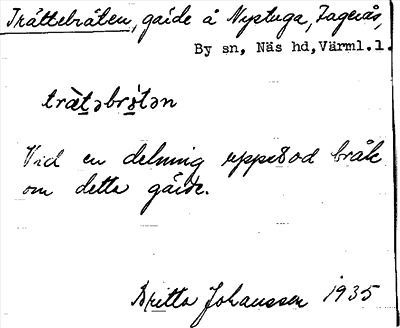 Trättebråten, gärde å Nystuga, Jagerås,
By sn, Näs hd, Värml.l.
trä̀t̯əbrṓtən
Vid en delning uppstod bråk
om detta gärde.
Britta Johansson 1935